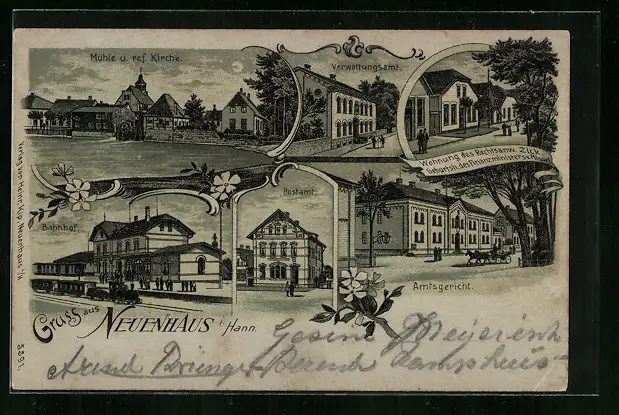 Mühle u. ref. Kirche.
Verwaltungsamt.
Wohnung des Rechtsanw. Zick.
Geburtsh. des Finanzministers v.
Bahnhof.
Postamt.
Amtsgericht.
Gruss aus NEUENHAUS i. Hann.
Verlag von Heinr. Kip, Neuenhaus i/H.
Gesine Meyerink
Arend Berend Kamphuis